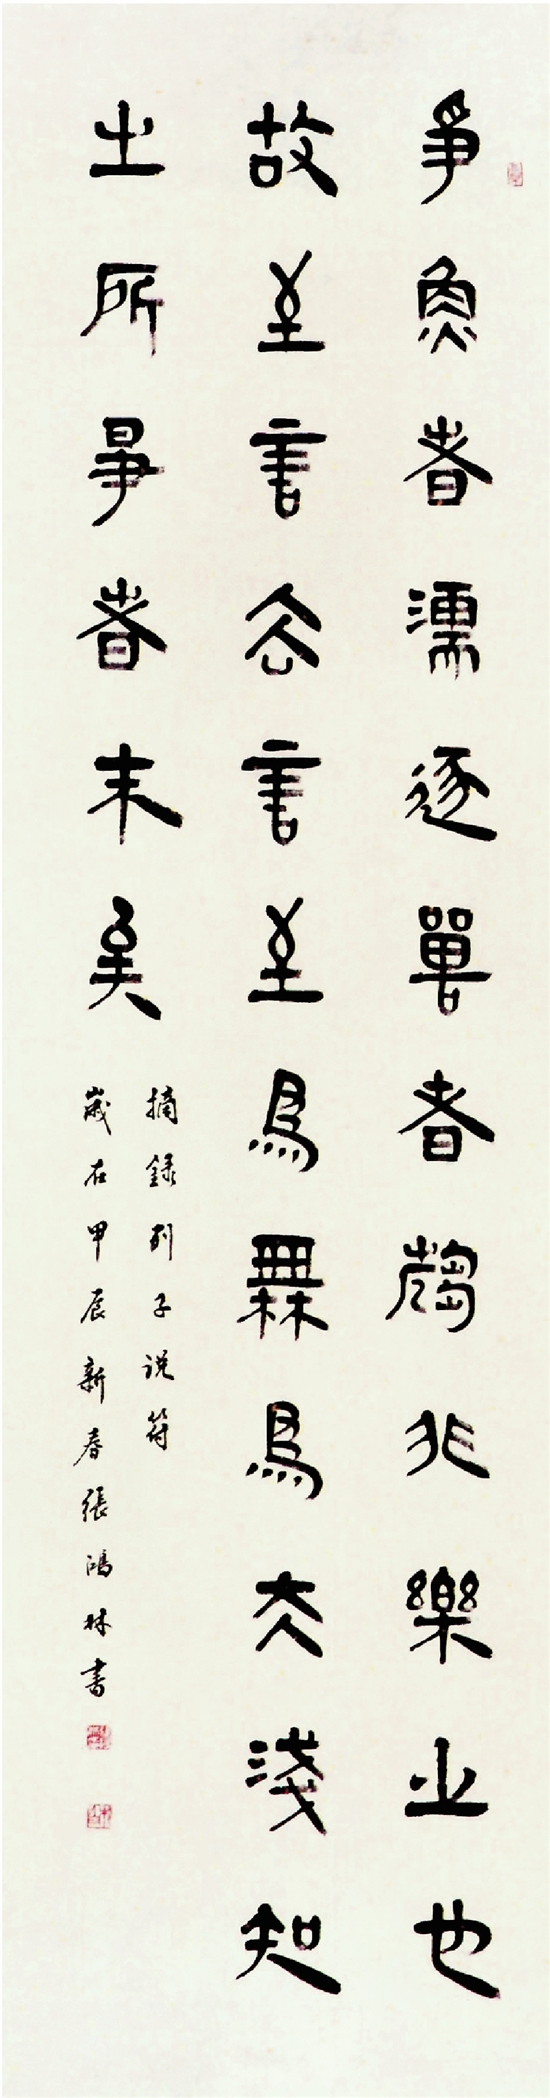 爭魚者濡逐嘼者趨非樂之也
故至言去言至為無為夫淺知
之所爭者末矣
摘録列子说符
歲在甲辰新春張鴻林書